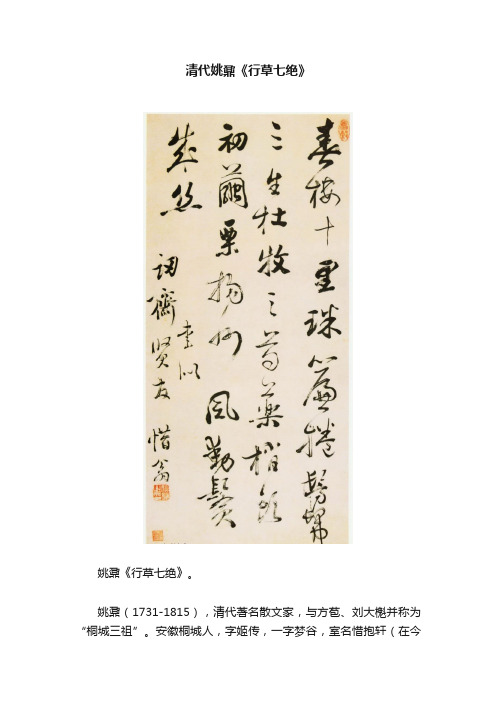 清代姚鼐《行草七绝》
春十里珠簾捲髣髴
三生杜牧之芍藥梢頭
初繭栗揚州風動鬢
成絲
書似
齋賢友 惜翁
姚鼐《行草七绝》。
姚鼐（1731-1815），清代著名散文家，与方苞、刘大櫆并称为
“桐城三祖”。安徽桐城人，字姬传，一字梦谷，室名惜抱轩（在今